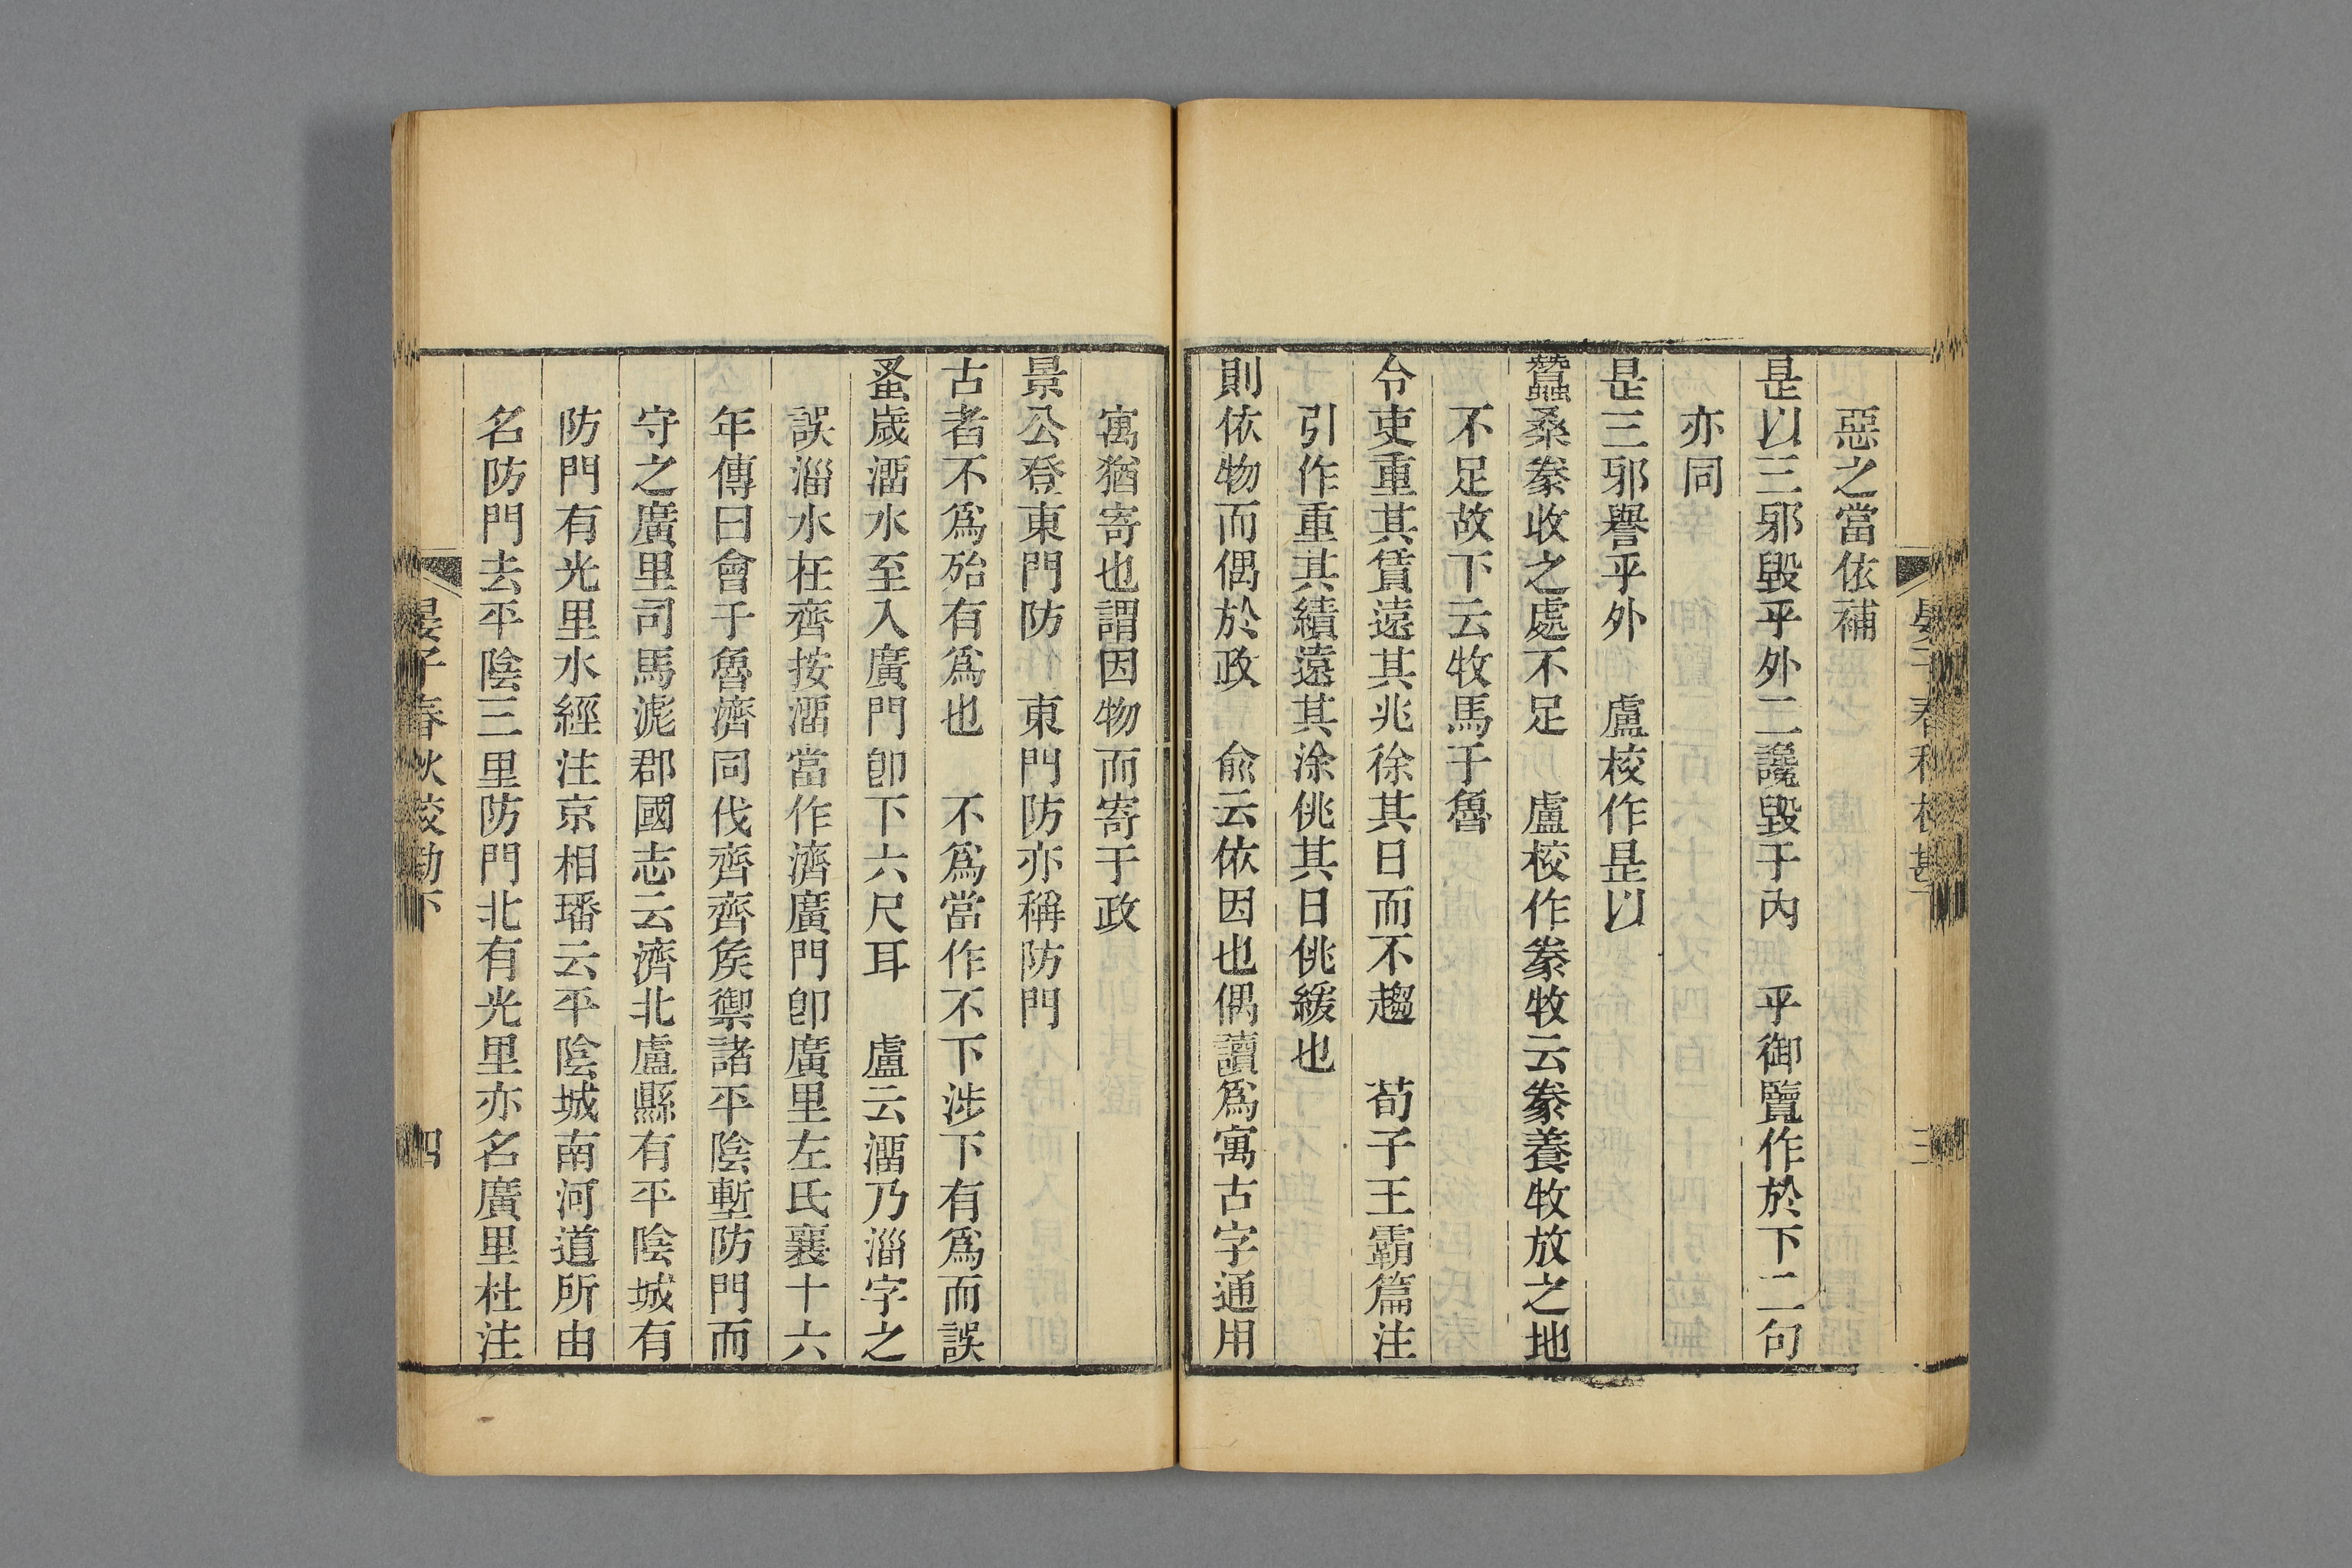 惡之當依補
是以三邪毀乎外二讒毀于內　乎御覽作於下二句
亦同
是三邪譽乎外　盧校作是以
蠶桑豢收之處不足　盧校作豢牧云豢養牧放之地
不足故下云牧馬于魯
令吏重其賃遠其兆徐其日而不趨　荀子王霸篇注
引作重其績遠其涂佻其日佻緩也
則依物而偶於政　俞云依因也偶讀爲寓古字通用
寓猶寄也謂因物而寄于政
景公登東門防　東門防亦稱防門
古者不爲殆有爲也　不爲當作不下涉下有爲而誤
蚤歲溜水至入廣門卽下六尺耳　盧云溜乃淄字之
誤淄水在齊按溜當作濟廣門卽廣里左氏襄十六
年傳曰會于魯濟同伐齊齊矦禦諸平陰塹防門而
守之廣里司馬滮郡國志云濟北盧縣有平陰城有
防門有光里水經注京相璠云平陰城南河道所由
名防門去平陰三里防門北有光里亦名廣里杜注
晏子春秋校勘下
四